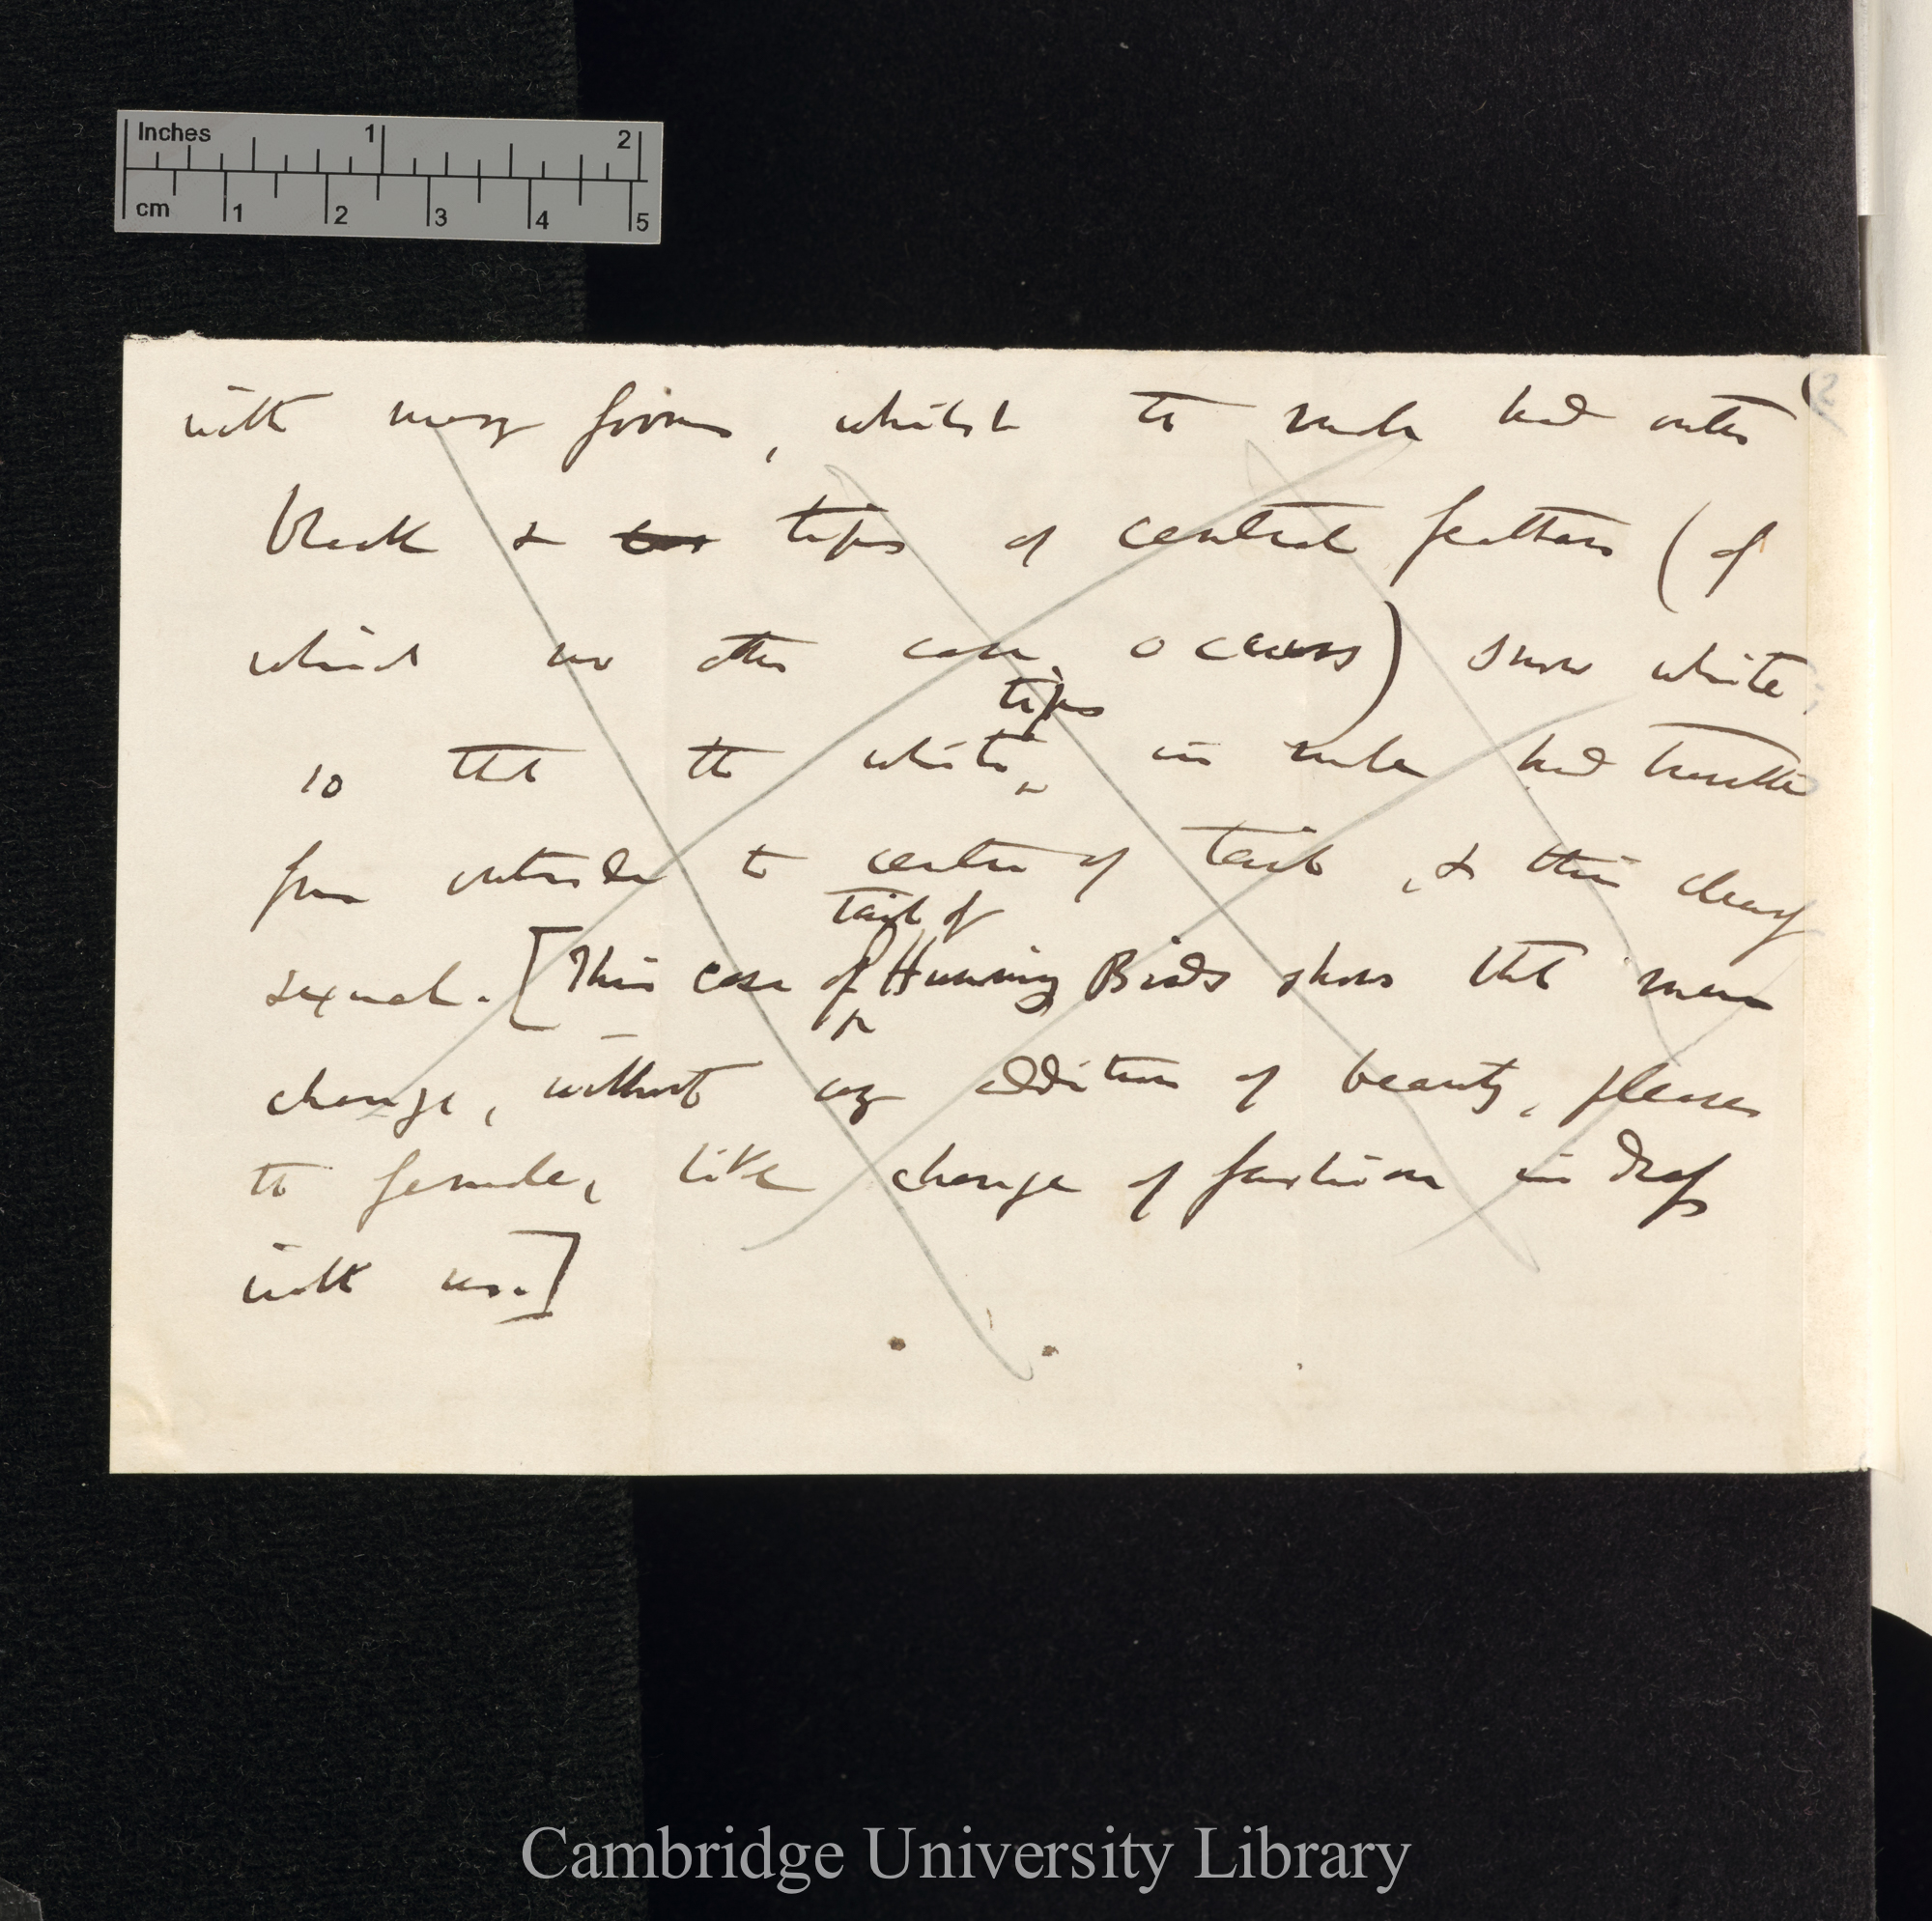 Inches 1 2
cm 1 2 3 4 5
(2
with many forms, whilst the male has outer
black & tips of central feathers (of
which no other case occurs) snow white;
tips
so that the white in male has travelled
from outside to centre of tail, & this clearly
tail of
sexual. [This case of Humming Birds shows that mere
change, without any addition of beauty, pleases
the female, like change of fashion in dress
with us.]
Cambridge University Library